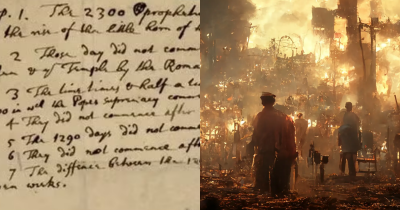 p. 1. The 2300 prophetick
the rise of the little horn of
2 Those day did not commen
n & y Temple by the Roma
3 The time times & half a t
is not the Popes supremacy comm
4 They did not commence after
5 The 1290 days did not comm
6 They did not commence afte
7 The difference between the 12
works.